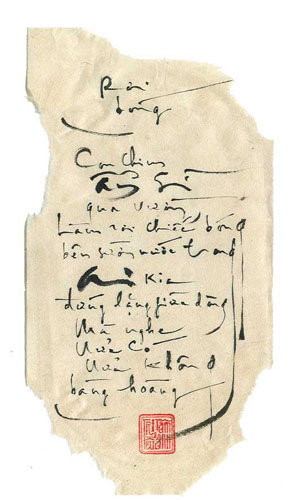 Rơi
bóng
Con chim
Ẩn Sĩ
qua vườn
Làm rơi chiếc bóng
bên sườn nước trong
Ai kia
đứng lặng giữa dòng
Mà nghe
Nửa Có
Nửa Không
bàng hoàng